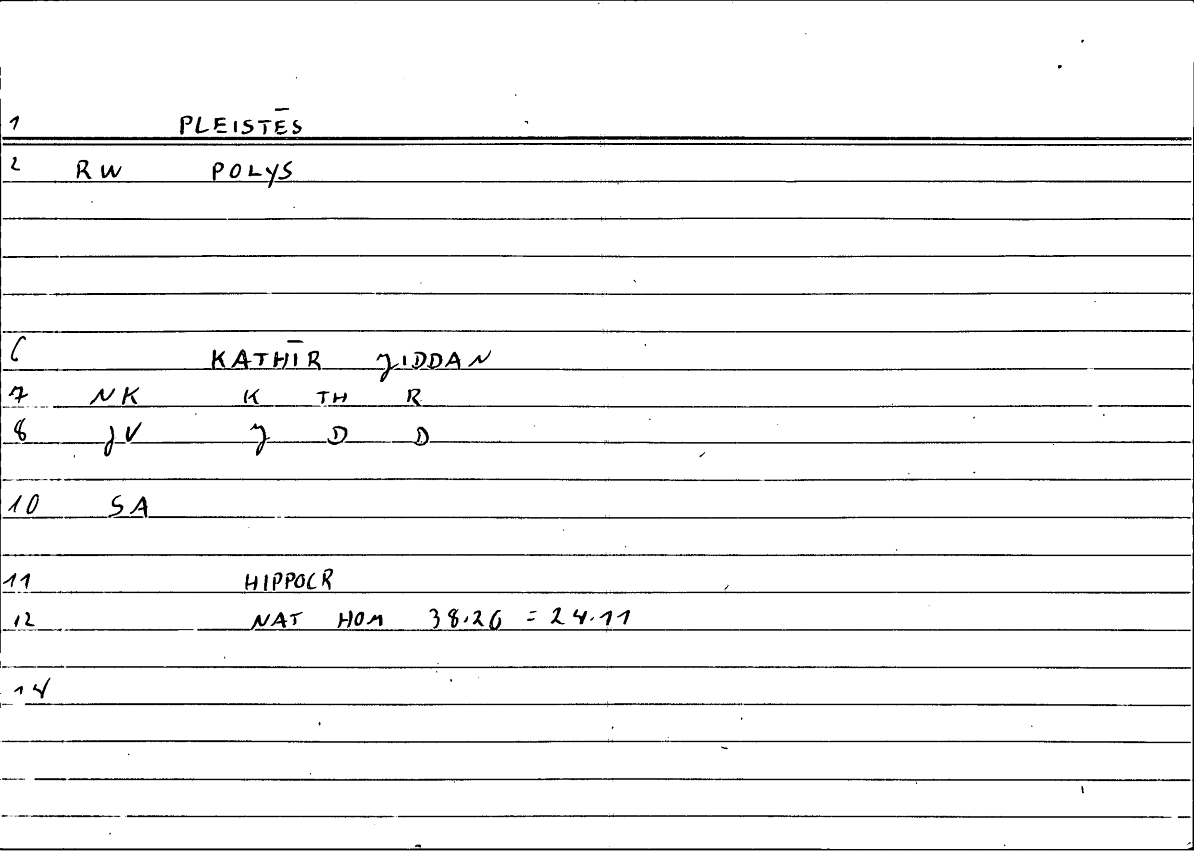 1 PLEISTĒS
2 RW POLYS
6 KATHĪR JIDDAN
7 NK K TH R
8 JV J D D
10 SA
11 HIPPOCR
12 NAT HOM 38.26 = 24.11
14